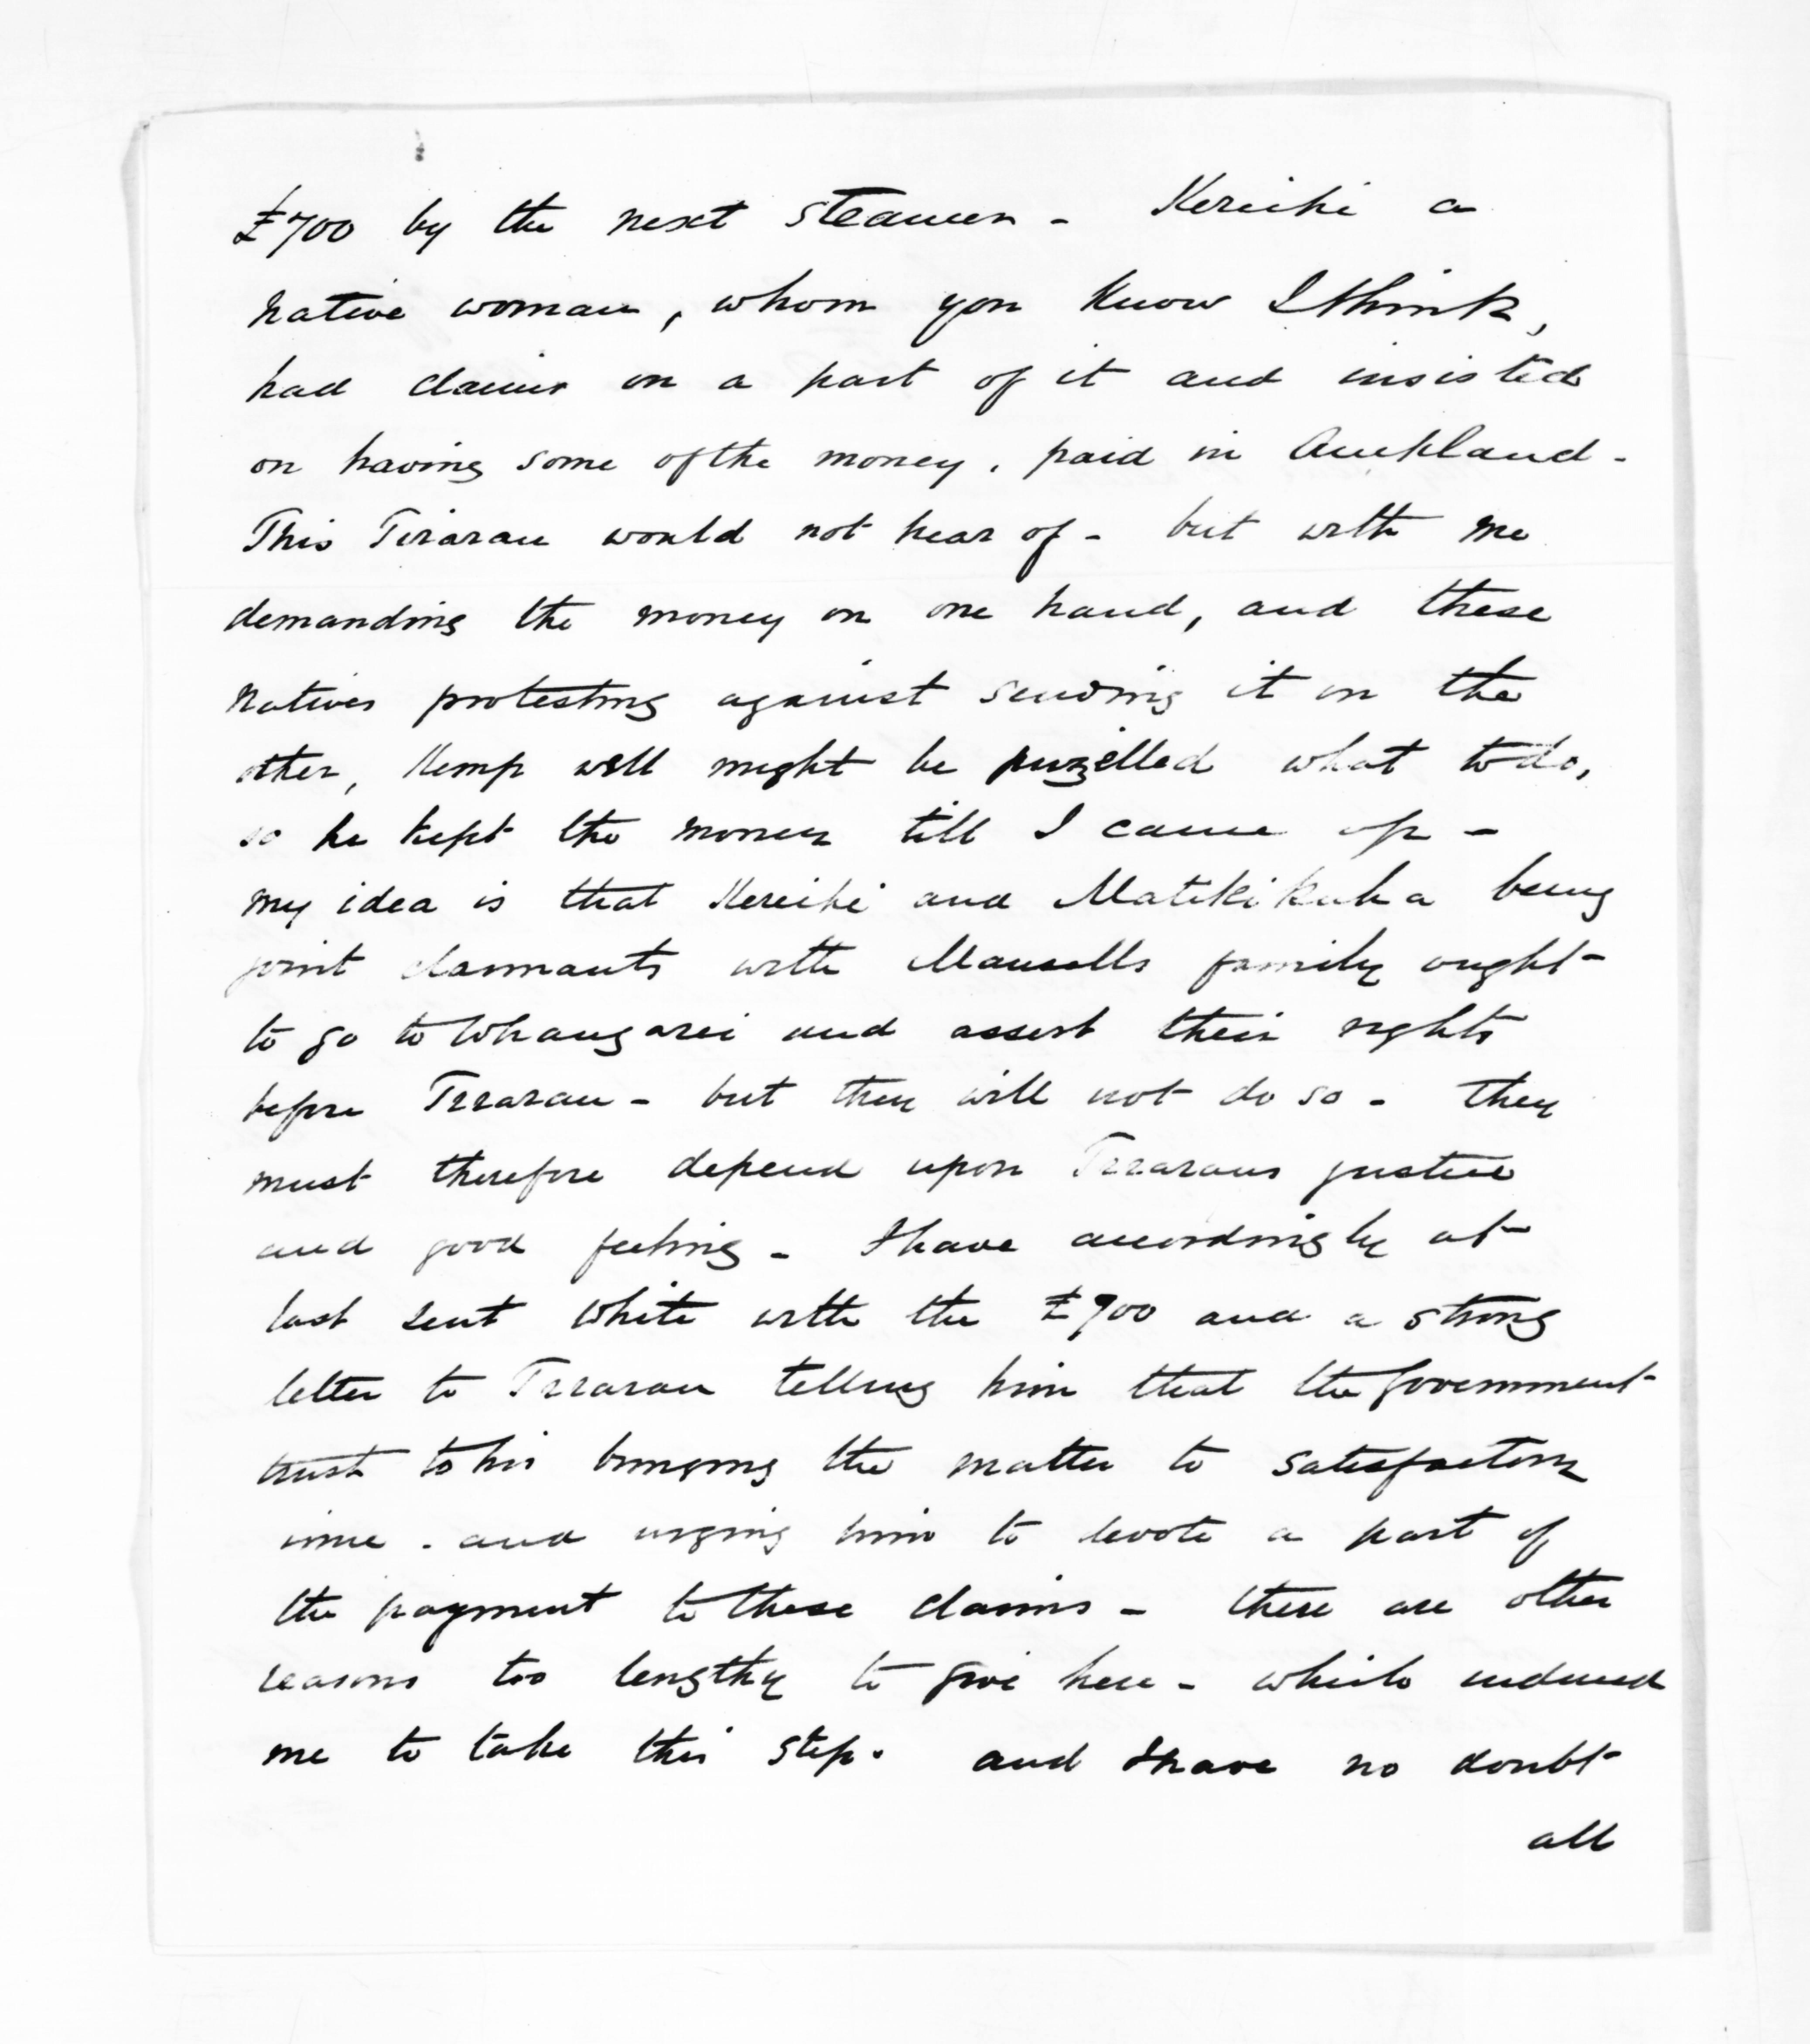 £700 by the next steamer - Kereihi a
native woman, whom you know I think,
had claims on a part of it and insisted
on having some of the money, paid in Auckland -
This Tirarau would not hear of - but with me
demanding the money on one hand, and these
natives protesting against sending it on the
other, Kemp well might be puzzelled what to do,
so he kept the money till I came up -
my idea is that Kereihi and Matikikuha being
joint claimants with Maunsells family ought
to go to Whangarei and assert their rights
before Tirarau - but they will not do so - They
must therefore depend upon Tiraraus justice
and good feeling - I have accordingly at
last sent White with the £700 and a strong
letter to Tirarau telling him that the Government
trust to his bringing the matter to satisfactory
issue . and urging him to devote a part of
the payment to these claims - there are other
reasons too lengthy to give here - which induced
me to take this step. and I have no doubt
all